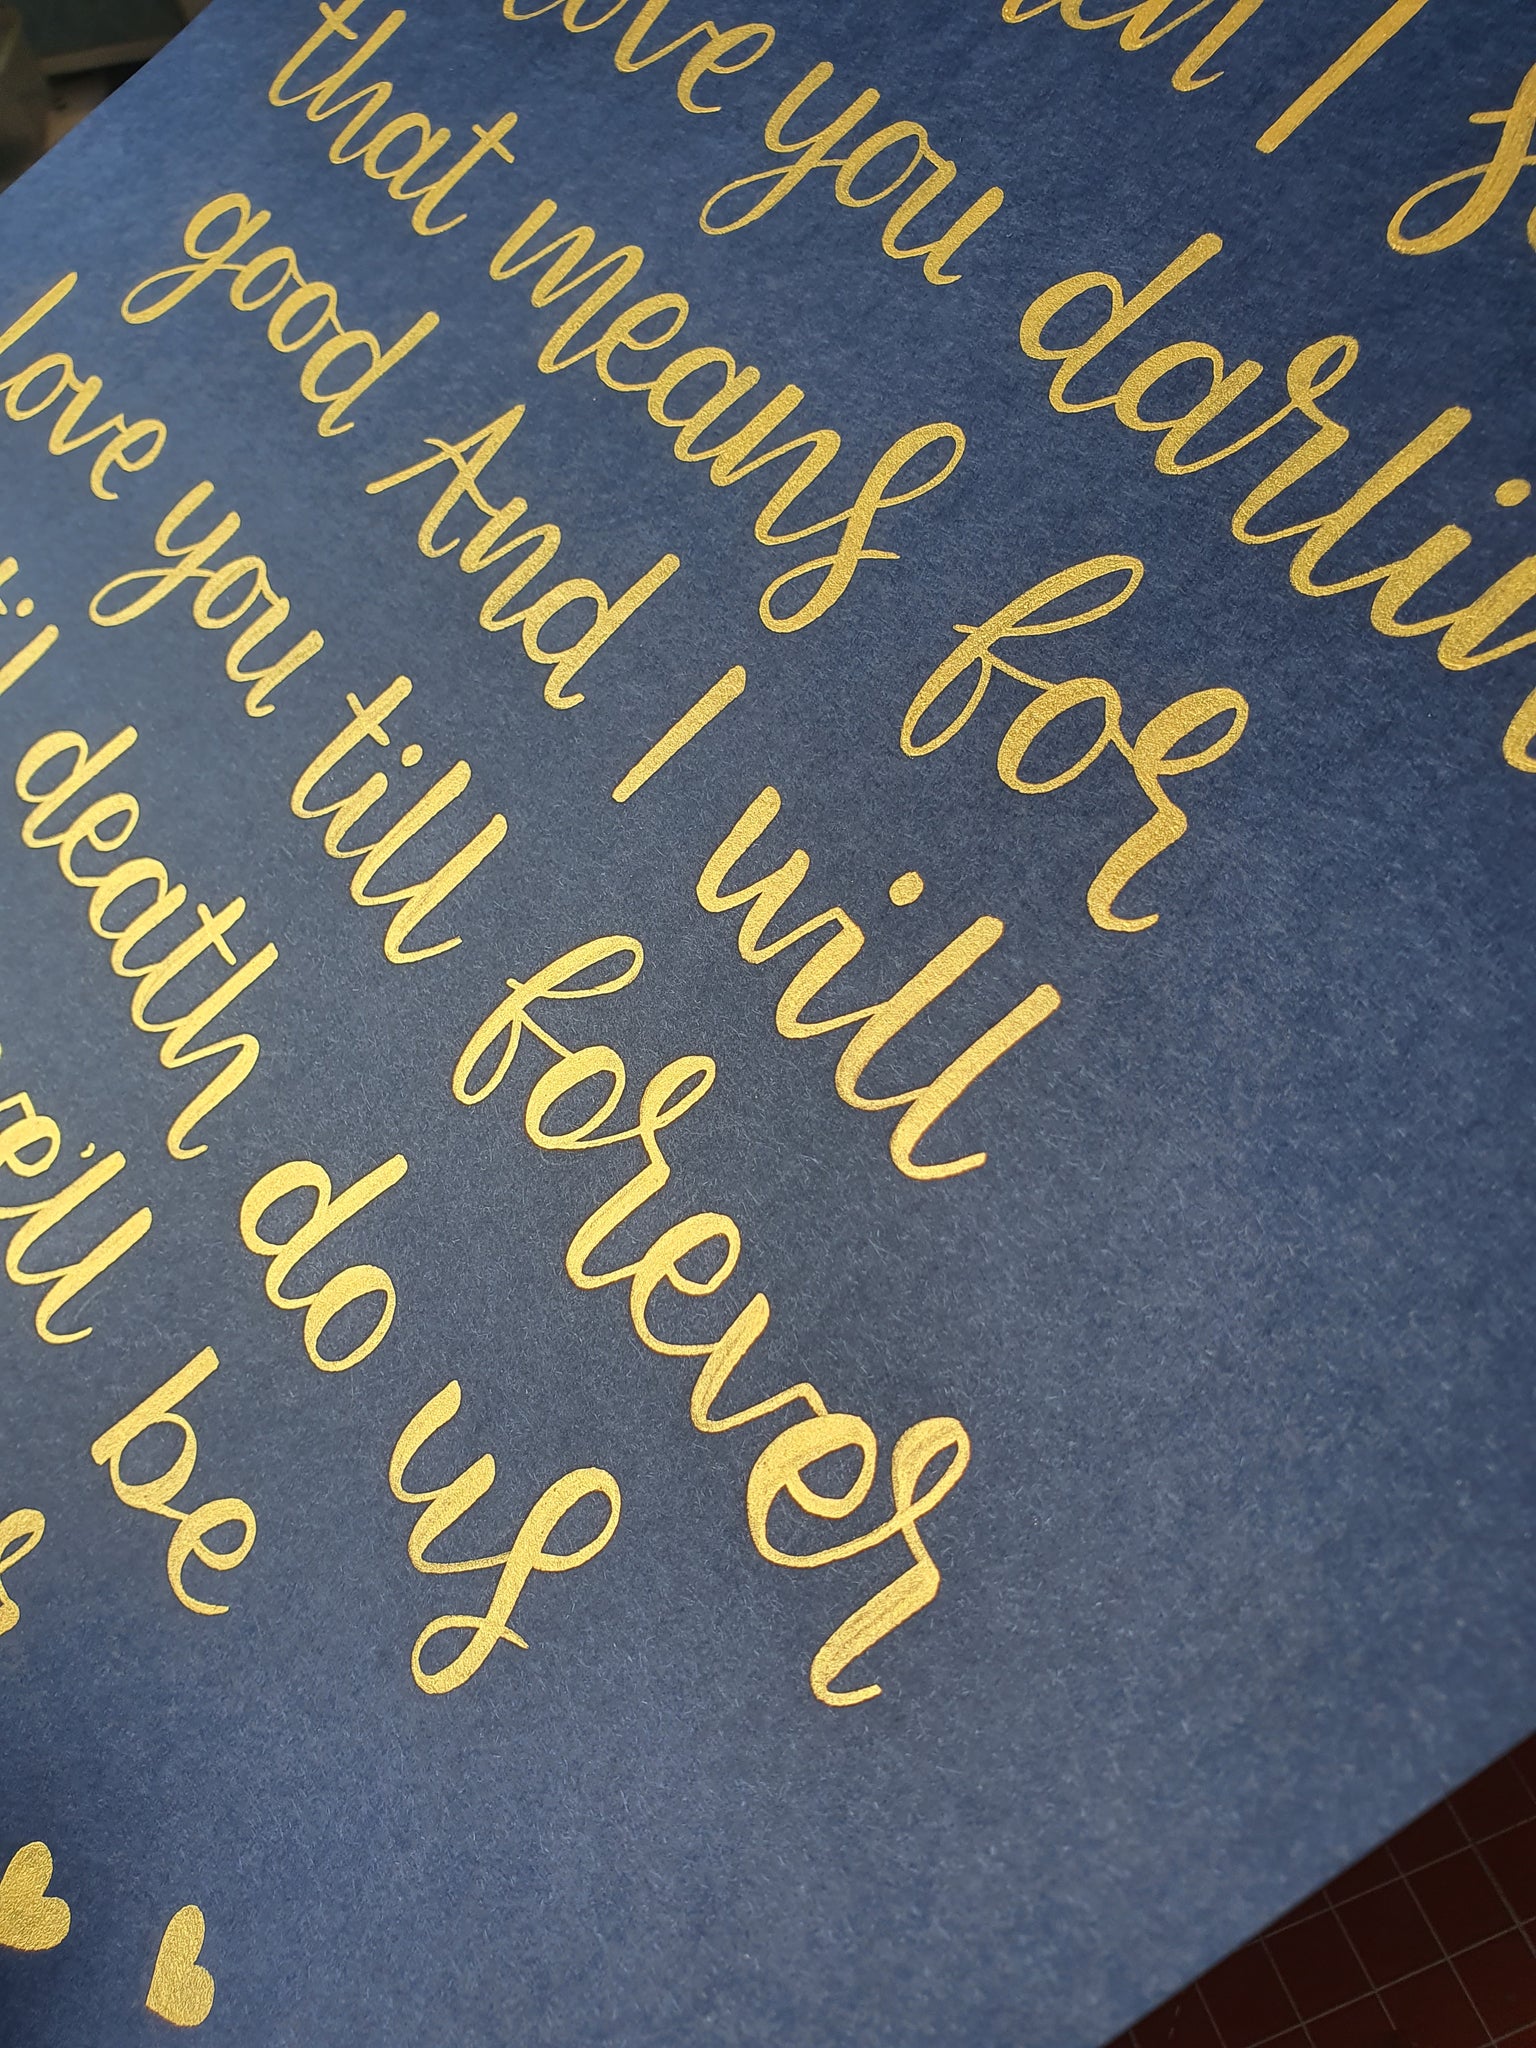 I
love you
that means for
good And I will
love you till forever
death do us
we'll be